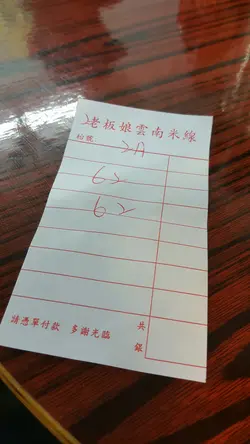 老板娘雲南米線
枱號 2A
62
62
請憑單付款 多謝光臨
共
銀